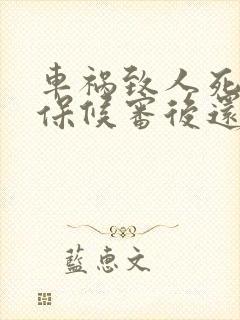 車禍致人死
保候審後還
藍惠文